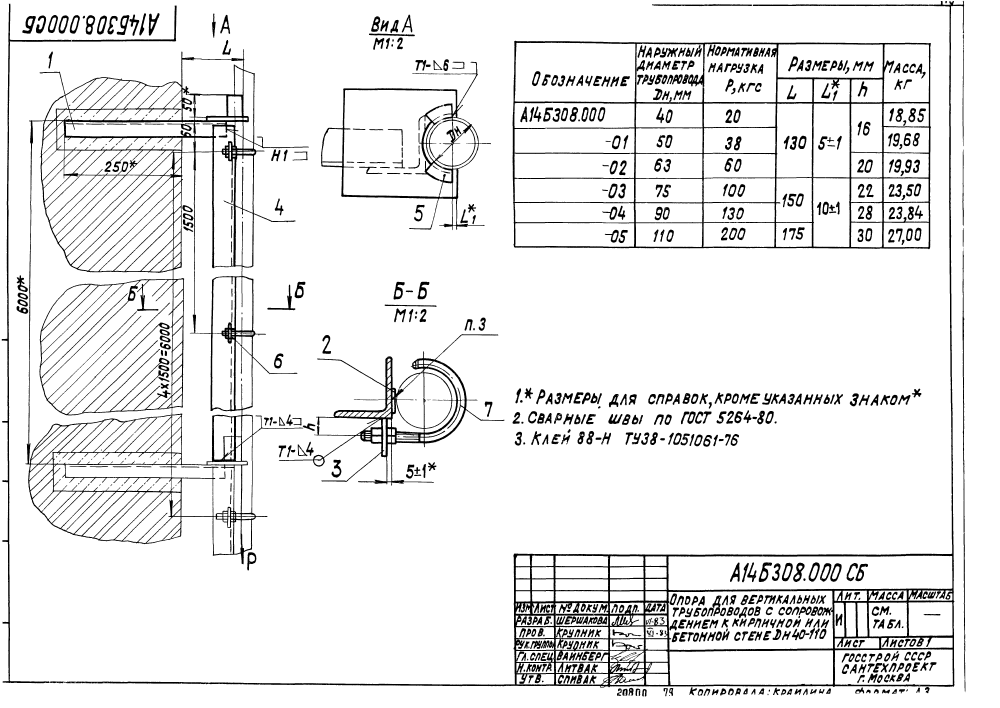 А14Б308.000СБ
А
L
1
50*
60
250*
6000*
1500
4×1500=6000
Н1
4
Б
Б
6
Т1-⊿4
Р
Вид А
М1:2
Т1-⊿6
Dн
5
L₁*
Б-Б
М1:2
п.3
2
7
h
Т1-⊿4
3
5±1*
Обозначение
Наружный диаметр трубопровода Dн, мм
Нормативная нагрузка Р, кгс
Размеры, мм
Масса, кг
L
L₁*
h
А14Б308.000 40 20 130 5±1 16 18,85
-01 50 38 19,68
-02 63 60 20 19,93
-03 75 100 150 10±1 22 23,50
-04 90 130 28 23,84
-05 110 200 175 30 27,00
1.* Размеры для справок, кроме указанных знаком*
2. Сварные швы по ГОСТ 5264-80.
3. Клей 88-Н ТУ38-1051061-76
А14Б308.000 СБ
Опора для вертикальных
трубопроводов с сопровож-
дением к кирпичной или
бетонной стене Dн 40-110
Лит. Масса Масштаб
И см. табл. —
Лист Листов 1
Госстрой СССР
Сантехпроект
г. Москва
Изм Лист № докум. Подп. Дата
Разраб. Шершакова VI-83
Пров. Крупник VI-83
Рук.группы Крупник
Гл. спец. Вайнберг
Н.контр Литвак
Утв. Спивак
Копировала: Краилина Формат: А3